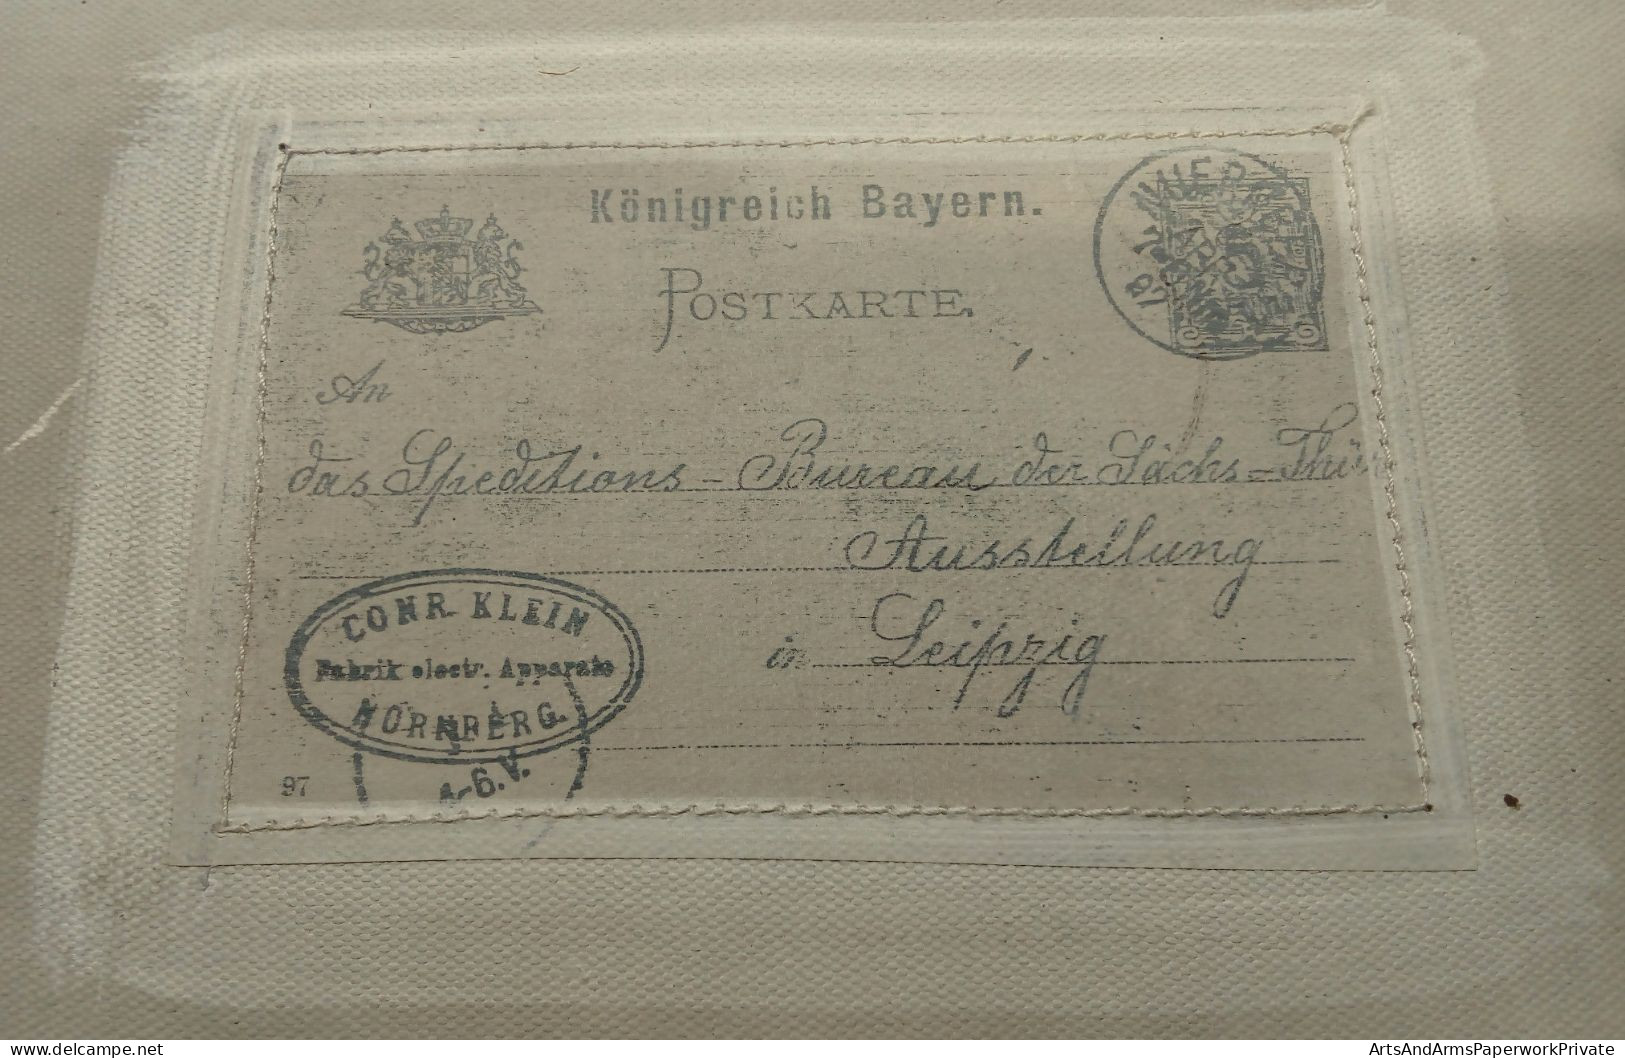 Königreich Bayern.
POSTKARTE.
An
das Speditions-Bureau der Sächs-Thür
Ausstellung
in Leipzig
CONR. KLEIN
Fabrik electr. Apparate
NÜRNBERG.
4-6.V.
97
6 6
www.delcampe.net
ArtsAndArmsPaperworkPrivate